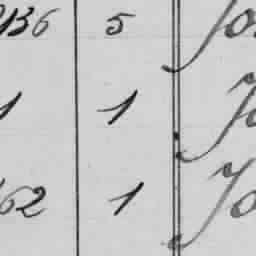 136 5 Jo
1 1 Jo
62 1 Jo